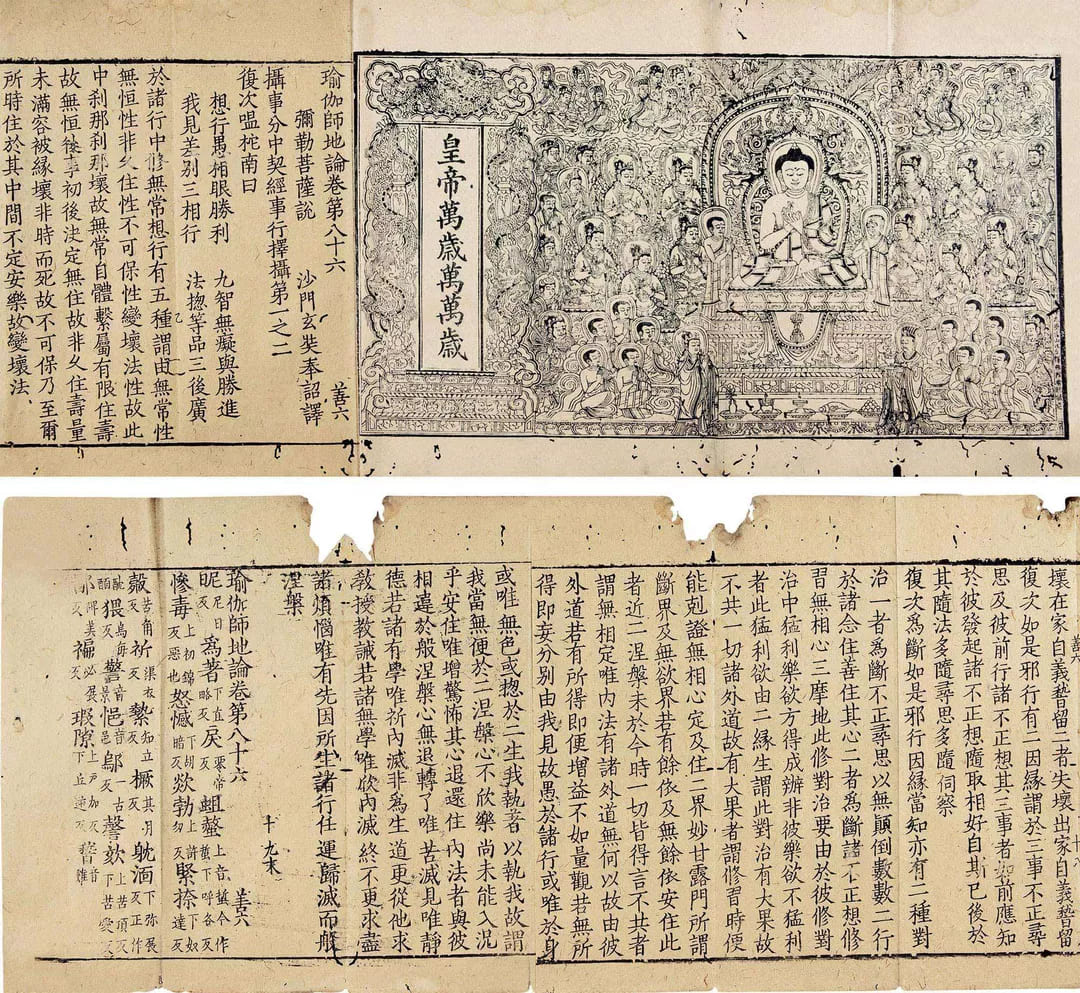 皇帝萬歲萬萬歲
瑜伽師地論卷第八十六 善六
彌勒菩薩說 沙門玄奘奉詔譯
攝事分中契經事行擇攝第一之二
復次嗢柁南曰
想行愚相眼勝利 九智無癡與勝進
我見差別三相行 法揔等品三後廣
於諸行中修無常想行有五種謂由無常性
無恒性非久住性不可保性變壞法性故此
中刹那刹那壞故無常自體繫屬有限住壽
故無恒後事初後決定無住故非久住壽量
未滿容被緣壞非時而死故不可保乃至爾
所時住於其中間不定安樂故變壞法
壞在家自義瞽留二者失壞出家自義瞽留
復次如是邪行有二因緣謂於三事不正尋
思及彼前行諸不正想其三事者如前應知
於彼發起諸不正想隨取相好自斯已後於
其隨法多隨尋思多隨伺察
復次為斷如是邪行因緣當知亦有二種對
治一者為斷不正尋思以無顛倒數數二行
於諸念住善住其心二者為斷諸不正想修
習無相心三摩地此修對治要由於彼修對
治中猛利樂欲方得成辦非彼樂欲不猛利
者此猛利欲由二緣生謂此對治有大果故
不共一切諸外道故有大果者謂修習時便
能剋證無相心定及住二界妙甘露門所謂
斷界及無欲界若有餘依及無餘依安住此
者近二涅槃未於今時一切皆得言不共者
謂無相定唯內法有諸外道無何以故由彼
外道若有所得即便增益不如量觀若無所
得即妄分別由我見故愚於諸行或唯於身
或唯無色或揔於二生我執著以執我故謂
我當無便於二涅槃心不欣樂尚未能入況
乎安住唯增驚怖其心退還住內法者與彼
相違於般涅槃心無退轉了唯苦滅見唯靜
德若諸有學唯祈內滅非為生道更從他求
教授教誡若諸無學唯欣內滅終不更求盡
諸煩惱唯有先因所生諸行任運歸滅而般
涅槃
瑜伽師地論卷第八十六 善六